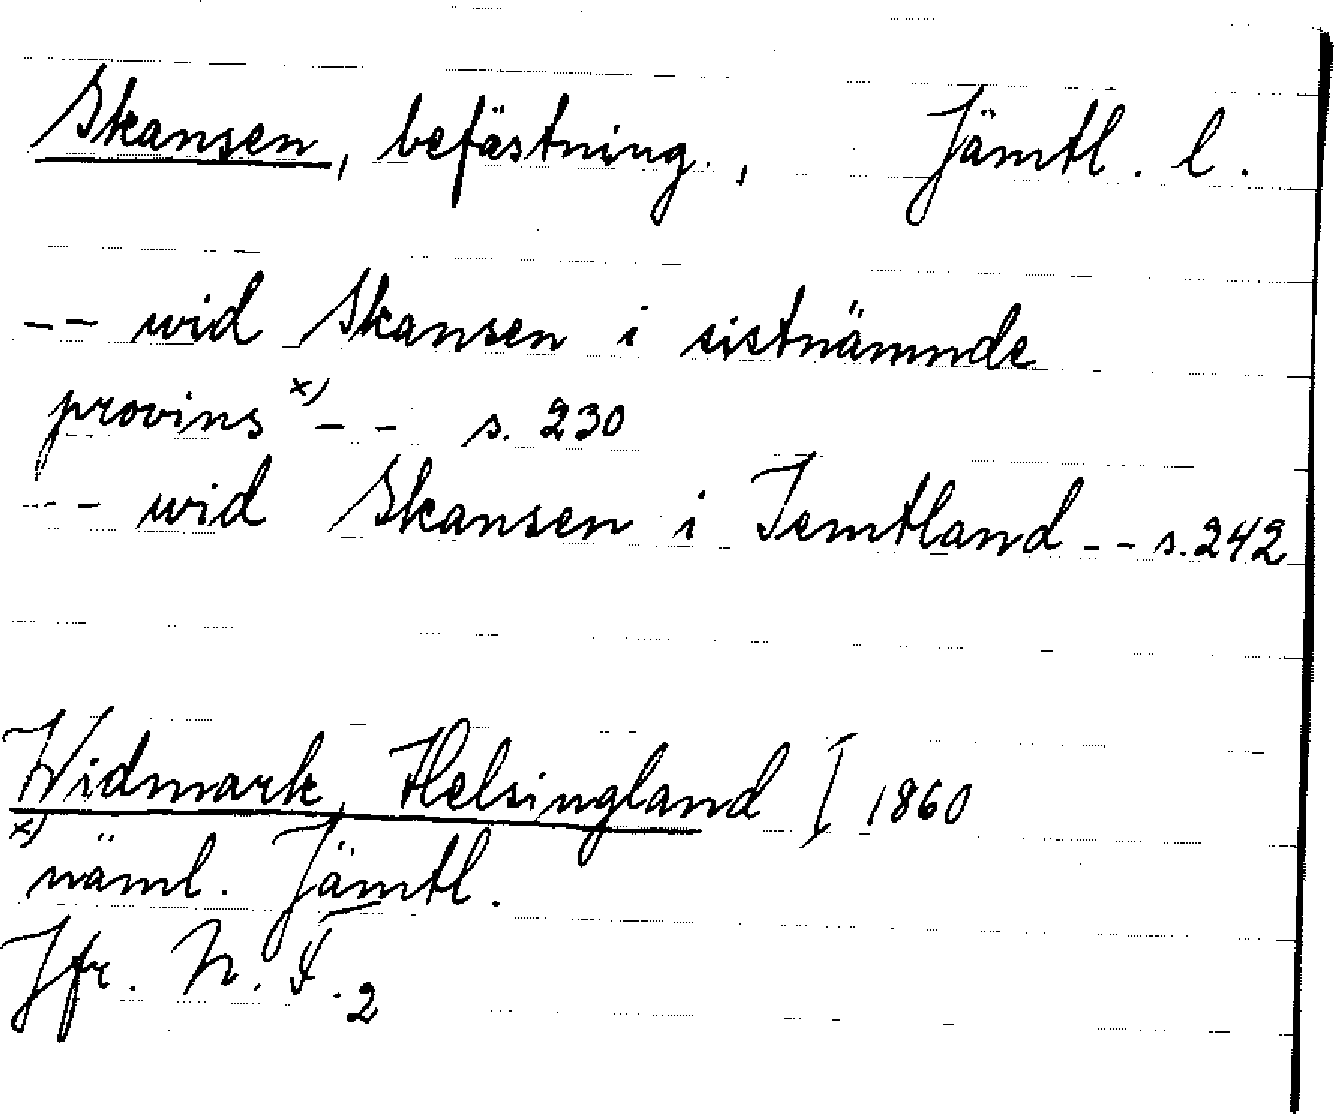 Skansen, befästning., Jämtl. l.
-- wid Skansen i sistnämnde
provins x) -- s. 230
-- wid Skansen i Jemtland -- s. 242
Widmark, Helsingland I 1860
x)
näml. Jämtl.
Jfr. N. F. 2